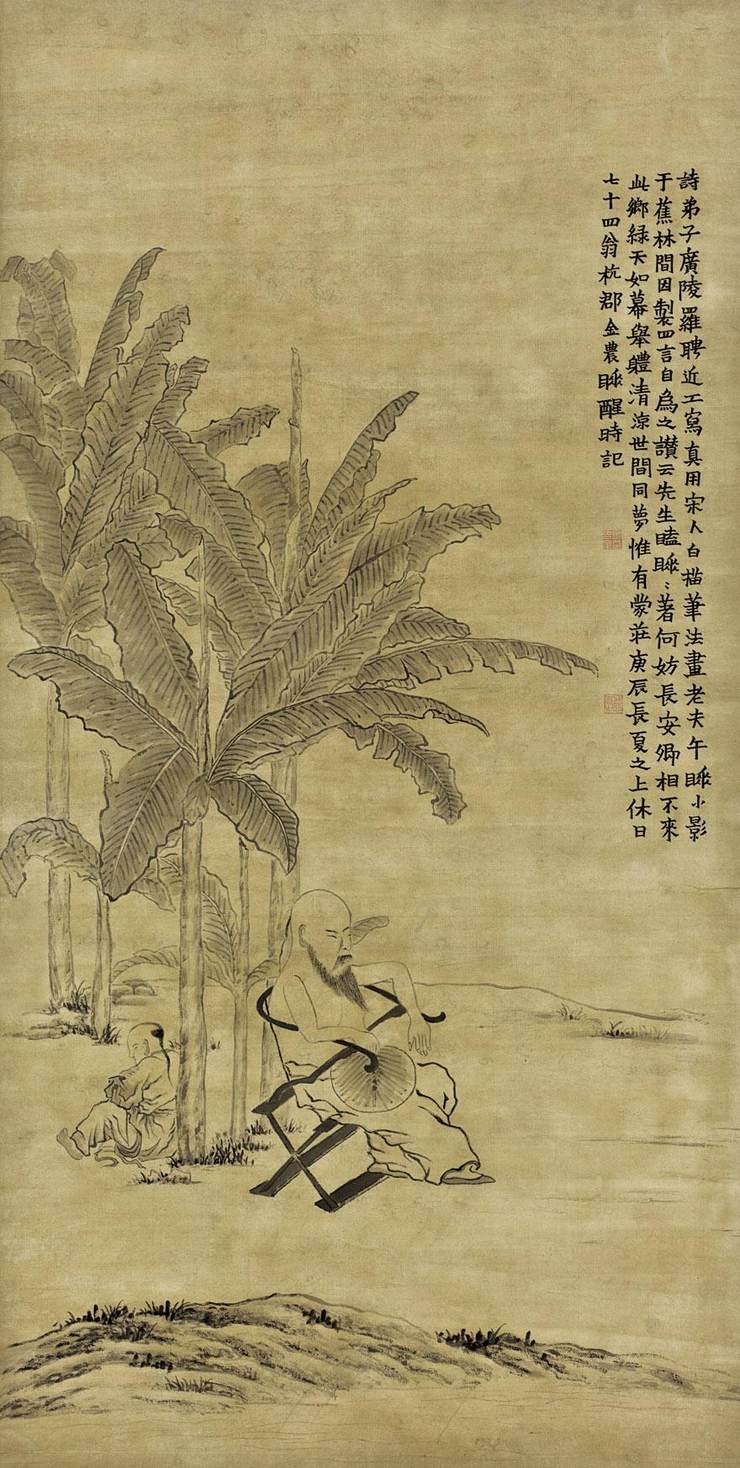 詩弟子廣陵羅聘近工寫真用宋人白描筆法畫老夫午睡小影
于蕉林間因製四言自爲之讚云先生瞌睡〻著何妨長安卿相不來
此鄉緑天如幕舉體清涼世間同夢惟有蒙莊庚辰長夏之上休日
七十四翁杭郡金農睡醒時記